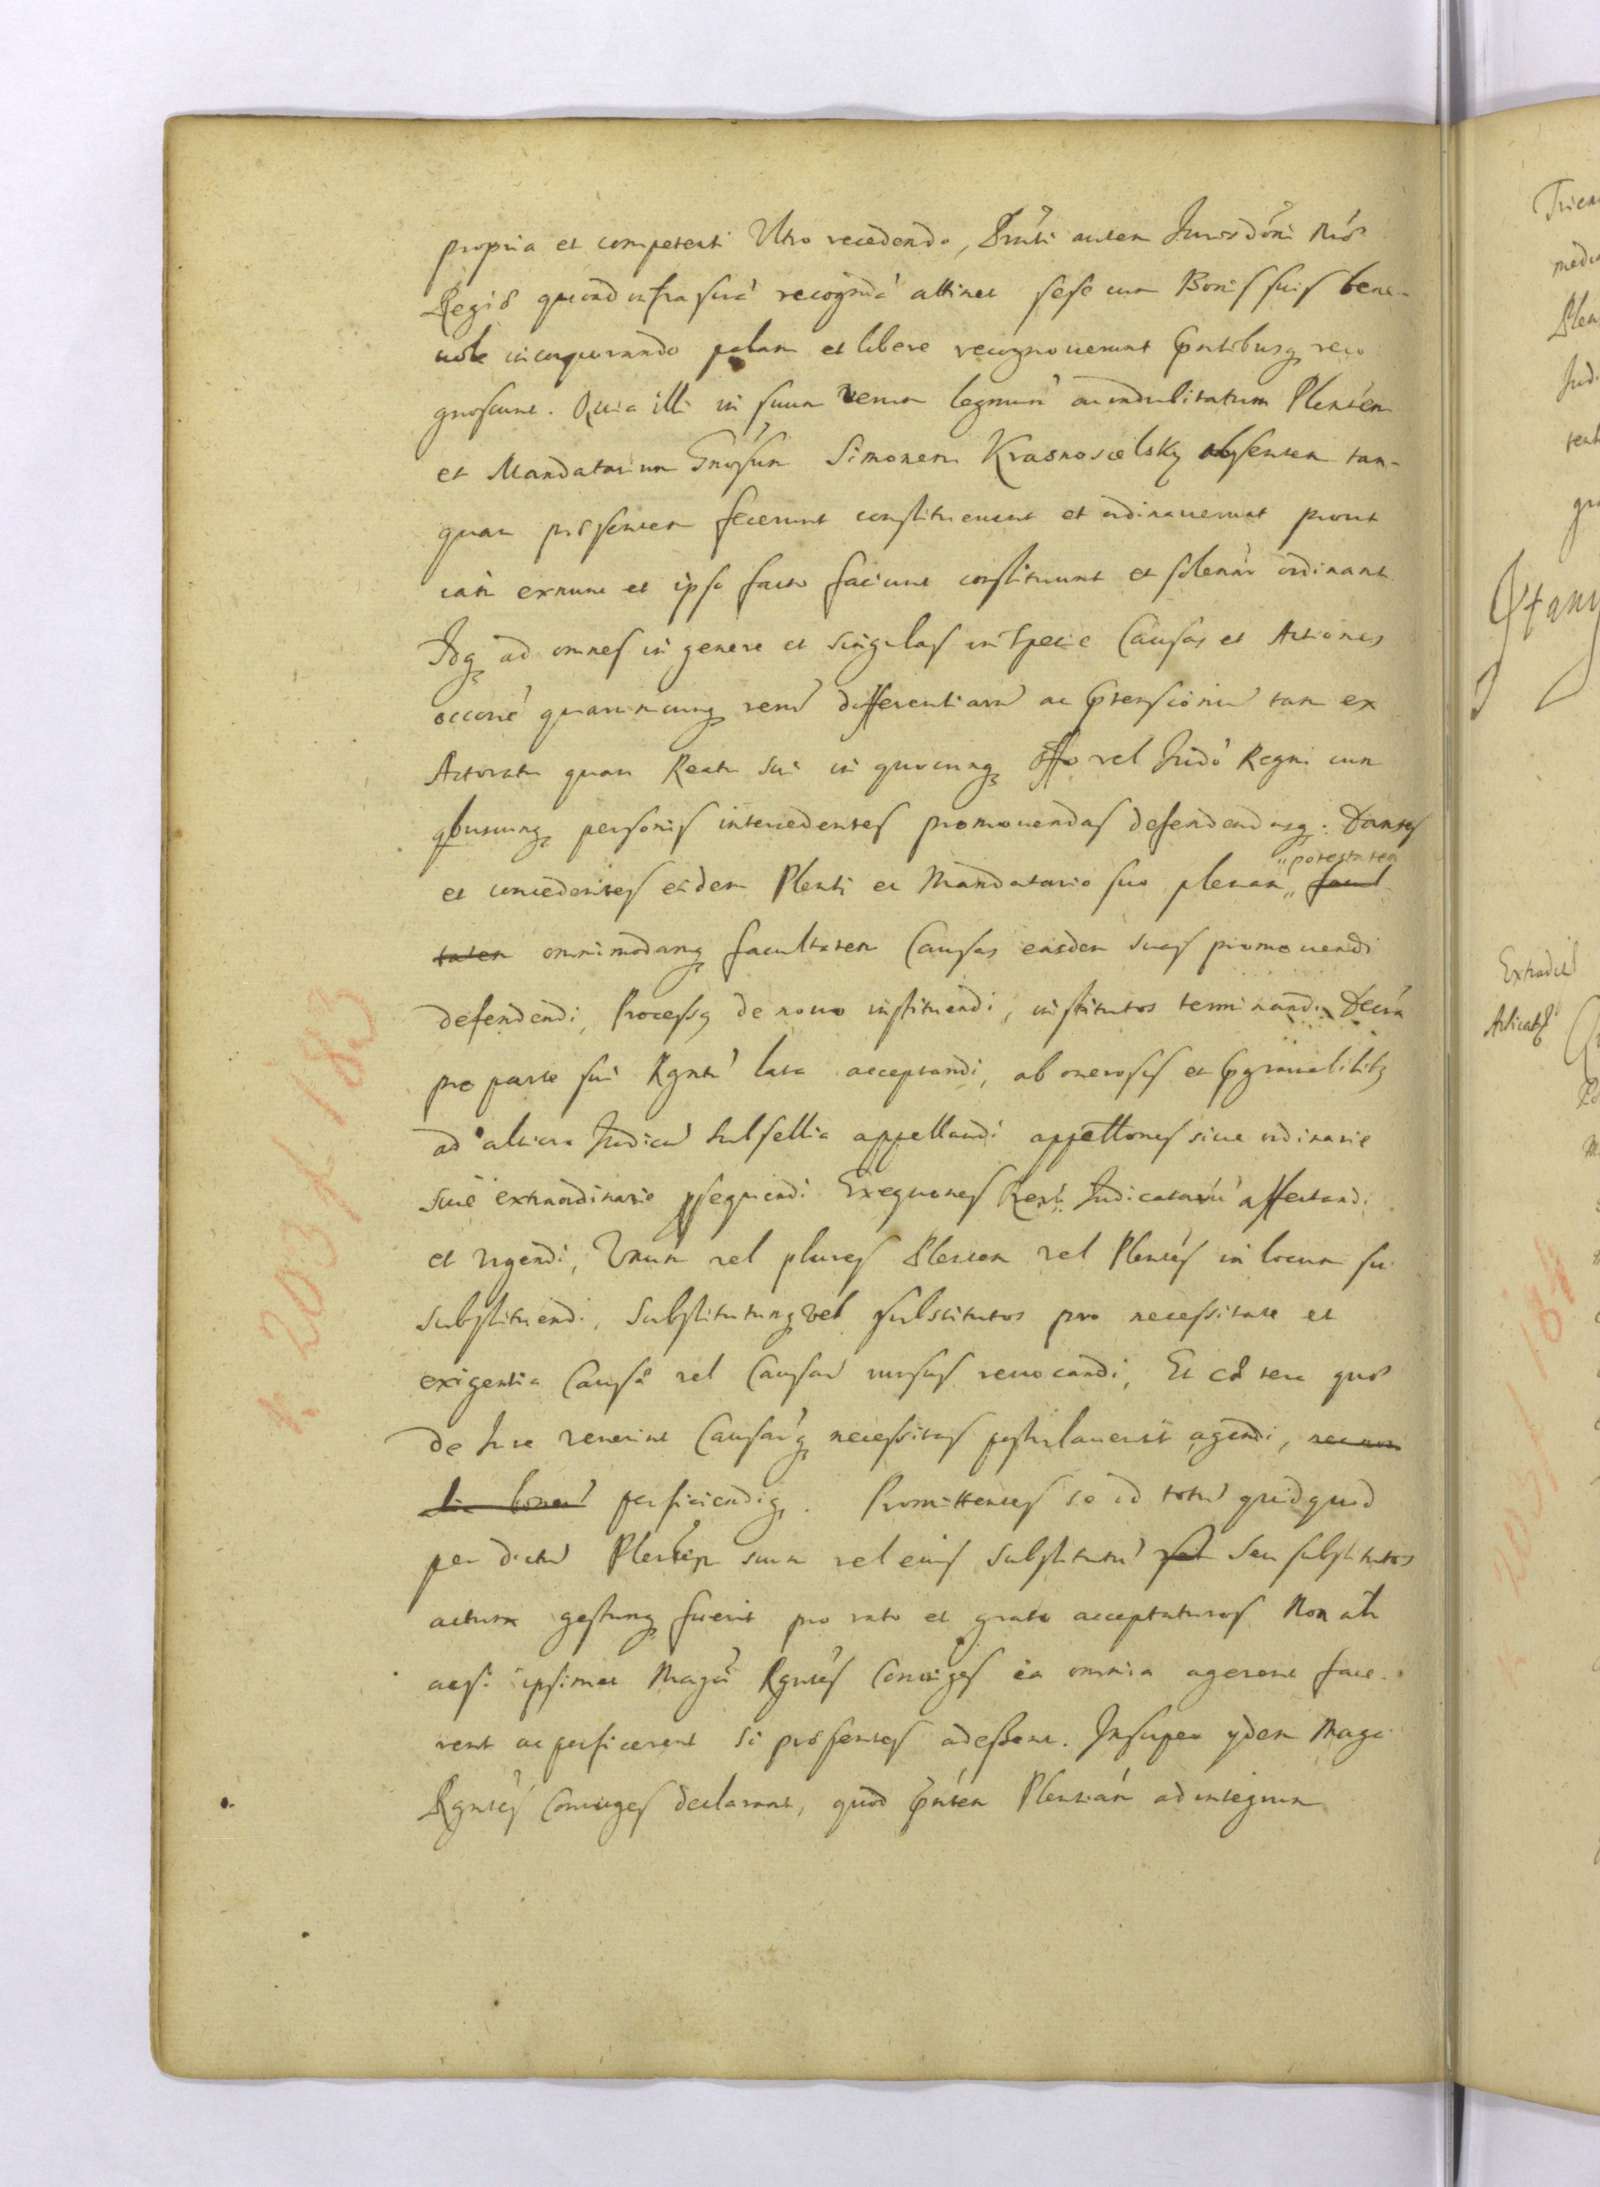 propria et competenti Ultro recedendo, Prnti autem Jurisdōni Mtis
Regiæ quoad infrascrā recognā attinet sese cum Bonis suis bene-
uole incorporando palam et libere recognouerunt Prntibusq reco
gnoscunt. Quia illi in suum verum legmum indubitatum Plentem
et Mandatarium Gnosum Simonem Krasnosielsky absentem tan-
quam præsentem fecerunt constituerunt et ordinauerunt prout
iam exnunc et ipso facto faciunt constituunt et solenr ordinant
Idq ad omnes in genere et singulas in specie Causas et Actiones
occone quarumcunq rerum differentiarum ac Prtensionum tam ex
Actoratu quam Reatu sui in quocunq Offo vel Judo Regni cum
qbuscunq personis intercedentes promouendas defendendasq. Dantes
et concedentes eidem Plenti et Mandatario suo plenam "potestatem" facul
tatem omnimodamq facultatem Causas easdem suas promouendi
defendendi, Processq de nouo instituendi, institutos terminandi Decra
pro parte sui Rgntium lata acceptandi, ab onerosis et Prgrauabilibq
ad altiora Judicum subsellia appellandi appellones siue ordinarie
siue extraordinarie prsequendi Exequones Rerum Judicatarum affectandi
et vrgendi, Vnum vel plures Plentem vel Plentes in locum sui
substituendi, substitutumq vel substitutos pro necessitate et
exigentia Causæ vel Causarum rursus reuocandi, Et cætera quæ
de Jure venerint Causarumq necessitas postulauerit agendi,
perficiendiq. Promittentes se id totum quidquid
per dictum Plentem suum vel eius substitutum vel seu substitutos
actum gestumq fuerit pro rato et grato acceptaturos Non alr
acsi ipsimet Magci Rgntes Coniuges ea omnia agerent face-
rent ac perficerent si præsentes adessent. Insuper ydem Magci
Rgntes Coniuges declarant, quod Prntem Plentiam ad integrum
N. 203 f. 183